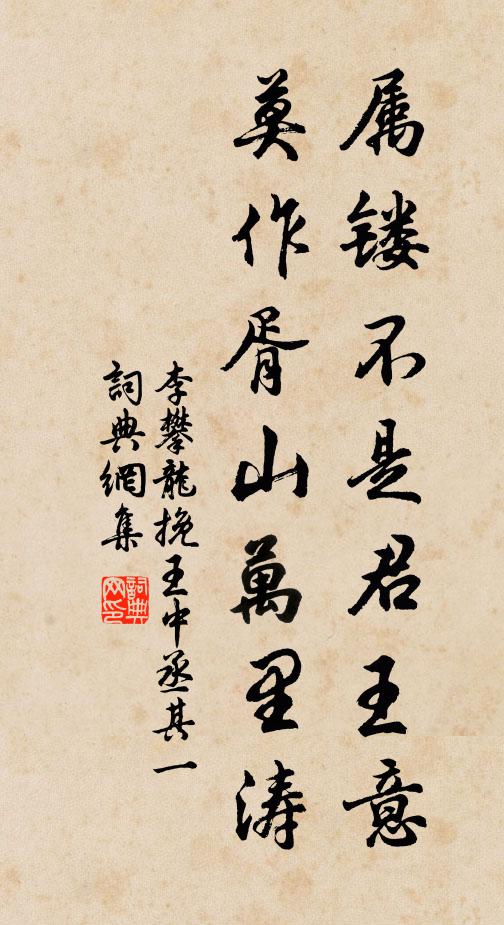 属镂不是君王意
莫作胥山萬里涛
李攀龍挽王中丞其一
詞典網集
詞典
网印